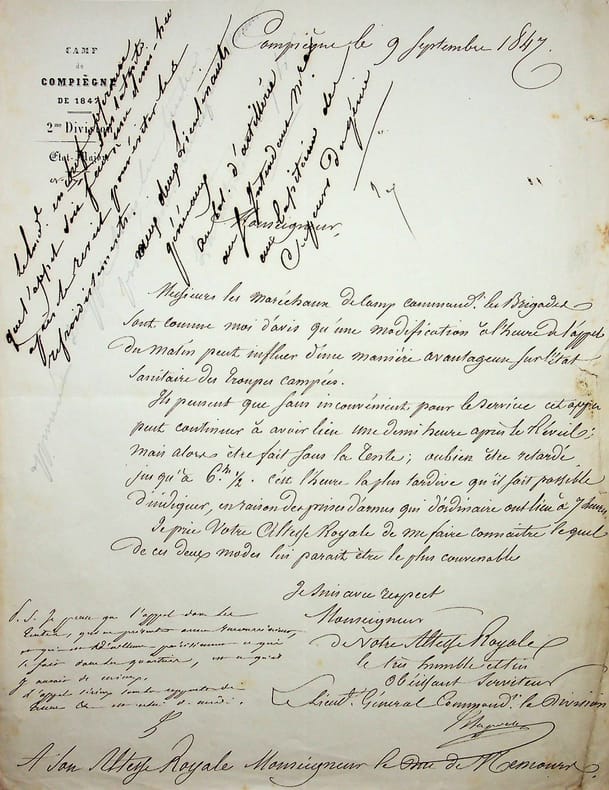 CAMP
de
COMPIÈGNE
DE 1847
2me Division
Etat-Major
Compiègne le 9 Septembre 1847.
que l'appel soit fait
après le réveil pour éviter les
refroidissements.
aux deux Lieutenants
généraux
d'artillerie
au Intendance
au Capitaine du
du génie
Monseigneur,
Messieurs les Maréchaux de Camp commandt. les Brigades
sont comme moi d'avis qu'une modification à l'heure de l'appel
du matin peut influer d'une manière avantageuse sur l'état
sanitaire des troupes campées.
Ils pensent que sans inconvénient pour le service cet appel
peut continuer à avoir lieu une demi heure après le Réveil;
mais alors être fait sous la tente; ou bien être retardé
jusqu'à 6h. ½. c'est l'heure la plus tardive qu'il soit possible
d'indiquer, en raison des prises d'armes qui d'ordinaire ont lieu à 7 heures
Je prie Votre Altesse Royale de me faire connaitre lequel
de ces deux modes lui parait être le plus convenable
Je suis avec respect
Monseigneur
de Votre Altesse Royale
le très humble et très
Obéissant Serviteur
Le Lieutt. Général Commandt. la Division
P.S. Je pense que l'appel dans les
tentes, que ne présente aucun inconvénient,
se fait dans les quartiers,
A Son Altesse Royale Monseigneur le Duc de Nemours.